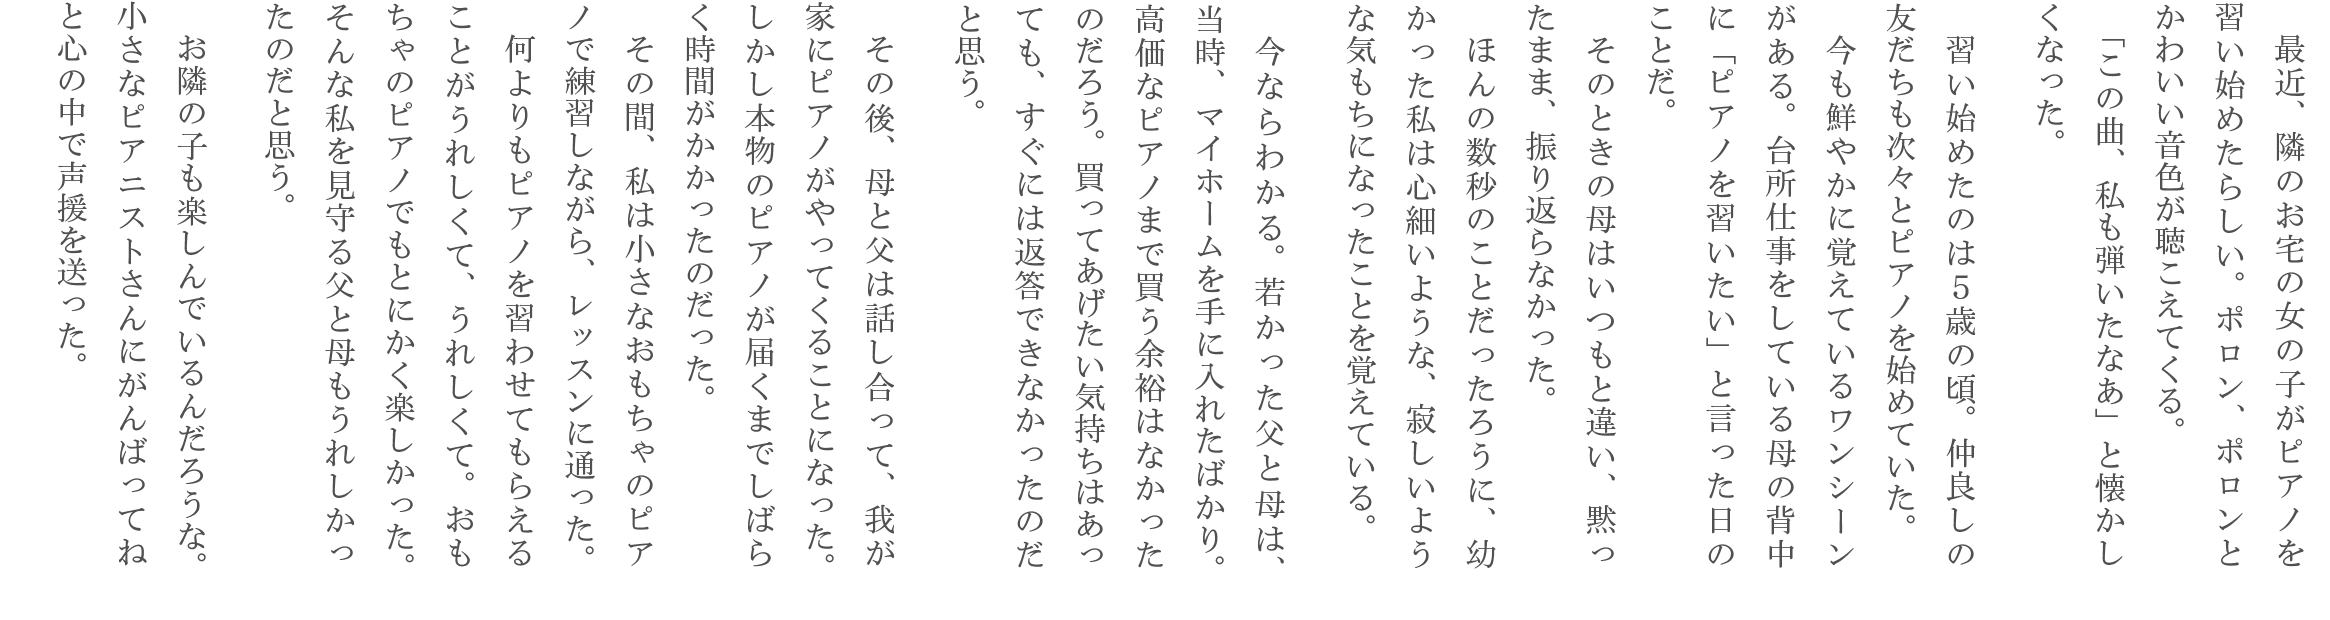 最近、隣のお宅の女の子がピアノを
習い始めたらしい。ポロン、ポロンと
かわいい音色が聴こえてくる。
　「この曲、私も弾いたなあ」と懐かし
くなった。
　習い始めたのは５歳の頃。仲良しの
友だちも次々とピアノを始めていた。
　今も鮮やかに覚えているワンシーン
がある。台所仕事をしている母の背中
に「ピアノを習いたい」と言った日の
ことだ。
　そのときの母はいつもと違い、黙っ
たまま、振り返らなかった。
　ほんの数秒のことだったろうに、幼
かった私は心細いような、寂しいよう
な気もちになったことを覚えている。
　今ならわかる。若かった父と母は、
当時、マイホームを手に入れたばかり。
高価なピアノまで買う余裕はなかった
のだろう。買ってあげたい気持ちはあっ
ても、すぐには返答できなかったのだ
と思う。
　その後、母と父は話し合って、我が
家にピアノがやってくることになった。
しかし本物のピアノが届くまでしばら
く時間がかかったのだった。
　その間、私は小さなおもちゃのピア
ノで練習しながら、レッスンに通った。
　何よりもピアノを習わせてもらえる
ことがうれしくて、うれしくて。おも
ちゃのピアノでもとにかく楽しかった。
そんな私を見守る父と母もうれしかっ
たのだと思う。
　お隣の子も楽しんでいるんだろうな。
小さなピアニストさんにがんばってね
と心の中で声援を送った。